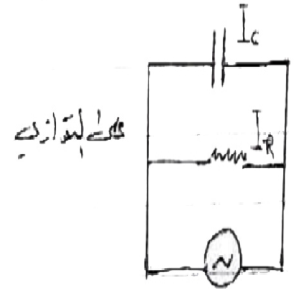 I_C
على التوازي
I_R
~